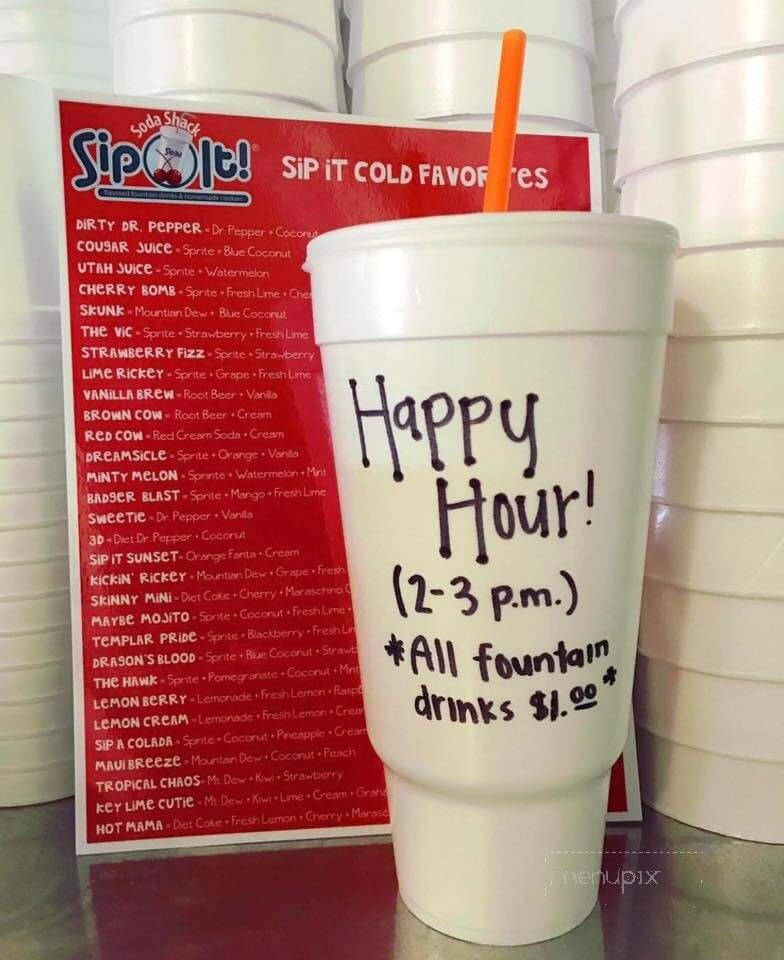 Soda Shack
Sip It!®
flavored fountain drinks & homemade cookies
SiP iT COLD FAVOR tes
DIRTY DR. PEPPER - Dr. Pepper • Coconut
COUGAR JUICE - Sprite • Blue Coconut
UTAH JUICE - Sprite • Watermelon
CHERRY BOMB - Sprite • Fresh Lime • Che
SKUNK - Mountian Dew • Blue Coconut
THE VIC - Sprite • Strawberry • Fresh Lime
STRAWBERRY FIZZ - Sprite • Strawberry
LIME RICKEY - Sprite • Grape • Fresh Lime
VANILLA BREW - Root Beer • Vanilla
BROWN COW - Root Beer • Cream
RED COW - Red Cream Soda • Cream
DREAMSICLE - Sprite • Orange • Vanilla
MINTY MELON - Sprinte • Watermelon • Mint
BADGER BLAST - Sprite • Mango • Fresh Lime
SWEETIE - Dr. Pepper • Vanilla
3D - Diet Dr. Pepper • Coconut
SIP IT SUNSET - Orange Fanta • Cream
KICKIN' RICKEY - Mountian Dew • Grape • Fresh
SKINNY MINI - Diet Coke • Cherry • Maraschino C
MAYBE MOJITO - Sprite • Coconut • Fresh Lime •
TEMPLAR PRIDE - Sprite • Blackberry • Fresh Lim
DRAGON'S BLOOD - Sprite • Blue Coconut • Strawb
THE HAWK - Sprite • Pomegranate • Coconut • Mint
LEMON BERRY - Lemonade • Fresh Lemon • Raspb
LEMON CREAM - Lemonade • Fresh Lemon • Cream
SIP A COLADA - Sprite • Coconut • Pineapple • Cream
MAUI BREEZE - Mountain Dew • Coconut • Peach
TROPICAL CHAOS - Mt. Dew • Kiwi • Strawberry
KEY LIME CUTIE - Mt. Dew • Kiwi • Lime • Cream • Graha
HOT MAMA - Diet Coke • Fresh Lemon • Cherry • Marasc
Happy
Hour!
(2-3 p.m.)
*All fountain
drinks $1.00*
menupix